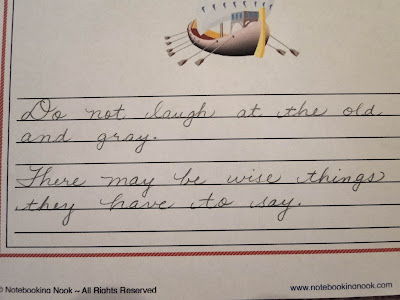 Do not laugh at the old,
and gray.
There may be wise things
they have to say.
© Notebooking Nook ~ All Rights Reserved
www.notebookingnook.com